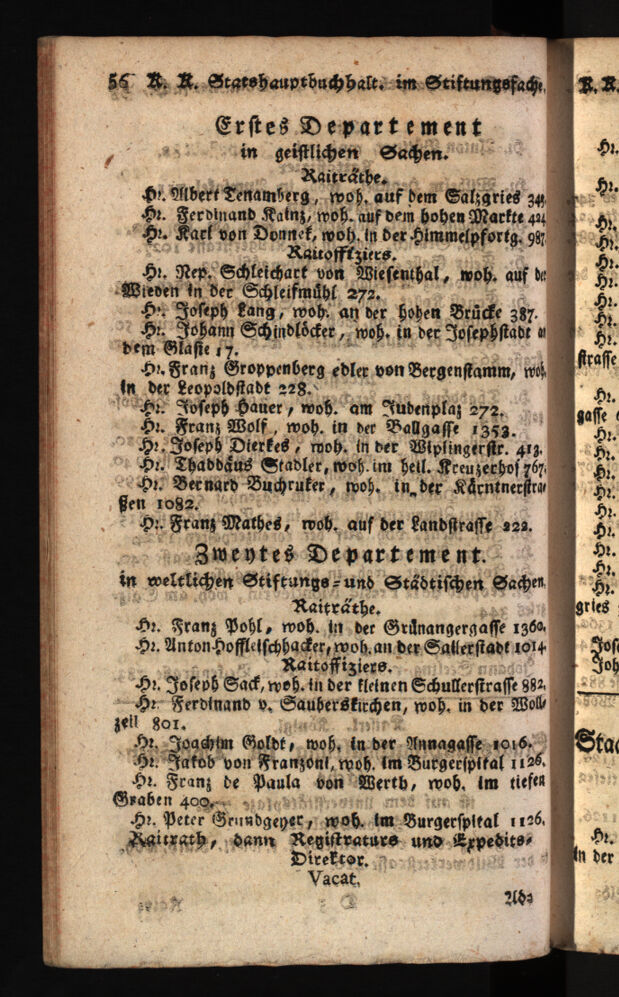 56 K. K. Statshauptbuchhalt. im Stiftungsfache.
Erstes Departement
in geistlichen Sachen.
Raiträthe.
Hr. Albert Tenamberg, woh. auf dem Salzgries
Hr. Ferdinand Kainz, woh. auf dem hohen Markte 424
Hr. Karl von Donnek, woh. in der Himmelpfortg. 987
Raitoffiziers.
Hr. Nep. Schleichart von Wiesenthal, woh. auf der
Wieden in der Schleifmühl 272.
Hr. Joseph Lang, woh. an der hohen Brücke 387.
Hr. Johann Schindlöcker, woh. in der Josephstadt
dem Glasie 17.
Hr. Franz Groppenberg edler von Bergenstamm, woh.
in der Leopoldstadt 228.
Hr. Joseph Hauer, woh. am Judenplaz 272.
Hr. Franz Wolf, woh. in der Ballgasse 1353.
Hr. Joseph Dierkes, woh. in der Wiplingerstr. 413.
Hr. Thaddäus Stadler, woh. im heil. Kreuzerhof 767.
Hr. Bernard Buchruker, woh. in der Kärntnerstra
ßen 1082.
Hr. Franz Mathes, woh. auf der Landstrasse 222.
Zweytes Departement.
in weltlichen Stiftungs- und Städtischen Sachen
Raiträthe.
Hr. Franz Pohl, woh. in der Grünangergasse 1360.
Hr. Anton Hoffleischhacker, woh. an der Sailerstadt 1014
Raitoffiziers.
Hr. Joseph Sack, woh. in der kleinen Schullerstrasse 882.
Hr. Ferdinand v. Sauberskirchen, woh. in der Woll
zeil 801.
Hr. Joachim Goldt, woh. in der Annagasse 1016.
Hr. Jakob von Franzoni, woh. im Burgerspital 1126.
Hr. Franz de Paula von Werth, woh. im tiefen
Graben 400.
Hr. Peter Grundgeyer, woh. im Burgerspital 1126.
Raitrath, dann Registraturs und Expedits-
Direktor.
Vacat.
Adj
K. K.
Hr.
Hr.
Hr.
Hr.
Hr.
Hr.
Hr.
Hr.
strasse
Hr.
gasse
Hr.
Hr.
Hr.
Hr.
Hr.
Hr.
Hr.
Hr.
Hr.
gries
Jos
Joh
Hr.
in der